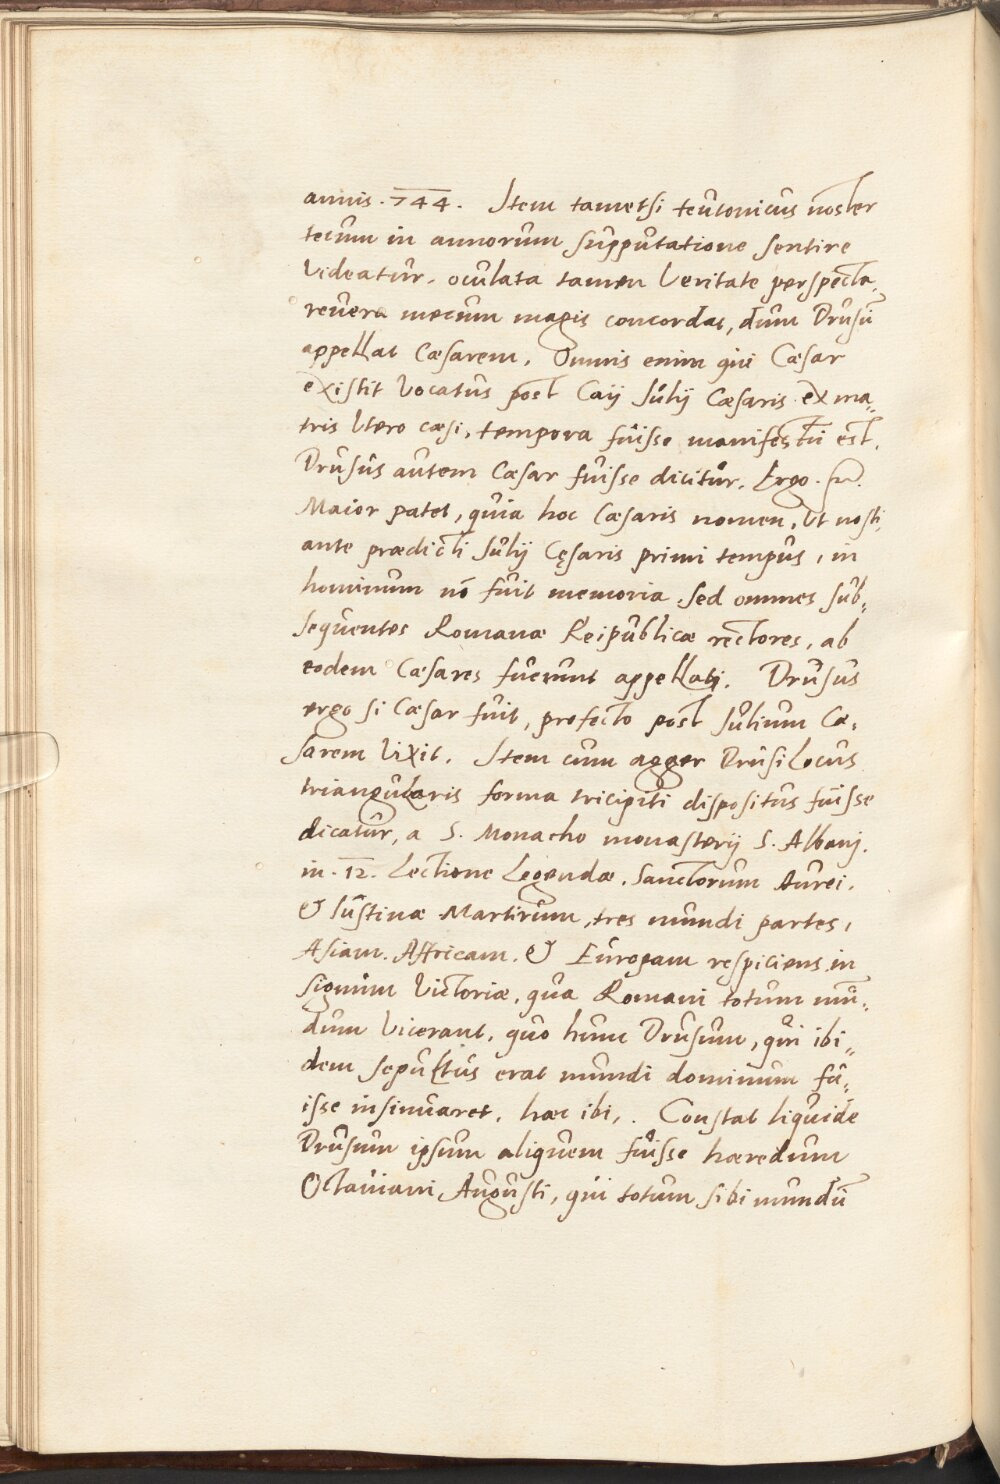 annis . 744 . Item tametsi teutonicus noster
tecum in annorum supputatione sentire
videatur, oculata tamen veritate perspecta,
revera mecum magis concordat, dum Drusū
appellat Cæsarem. Omnis enim qui Cæsar
existit vocatus post Caij Julij Cæsaris ex ma„
tris utero cæsi, tempora fuisse manifestū est.
Drusus autem Cæsar fuisse dicitur. Ergo .
Maior patet, quia hoc Cæsaris nomen, ut nosti,
ante prædicti Julij Cęsaris primi tempus, in
hominum nō fuit memoria, sed omnes sub„
sequentes Romanæ Reipublicæ rectores, ab
eodem Cæsares fuerunt appellatj. Drusus
ergo si Cæsar fuit, profecto post Julium Cæ„
sarem vixit. Item cum agger Drusi locus
triangularis forma tricipiti dispositus fuisse
dicatur, a S. Monacho monasterij S. Albanj.
in . 12. Lectione Legendæ, Sanctorum Aurei,
& Justinæ Martirum, tres mundi partes,
Asiam. Affricam. & Europam respiciens in
signum victoriæ, qua Romani totum mū„
dum vicerant, quo hunc Drusum, qui ibi„
dem sepultus erat mundi dominum fu„
isse insinuaret, hæc ibi, . Constat liquide
Drusum ipsum aliquem fuisse hæredum
Octaviani Augusti, qui totum sibi mundū